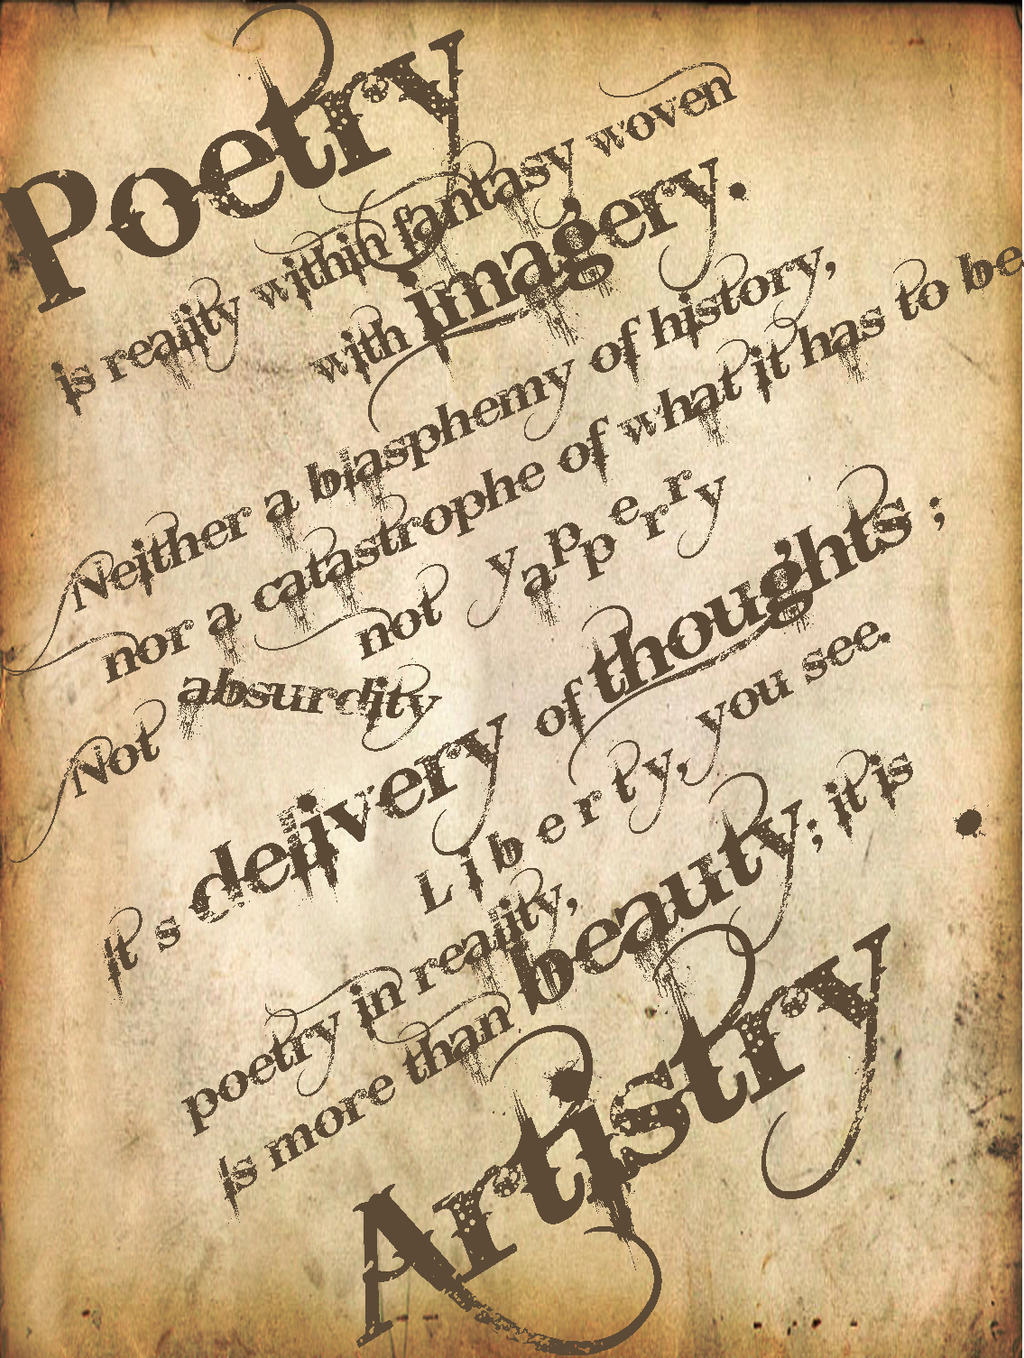 Poetry
is reality within fantasy woven
with imagery.
Neither a blasphemy of history,
nor a catastrophe of what it has to be
not yapperry
Not absurdity
It s delivery of thoughts ;
Liberty, you see.
poetry in reality,
Is more than beauty; it is
Artistry.